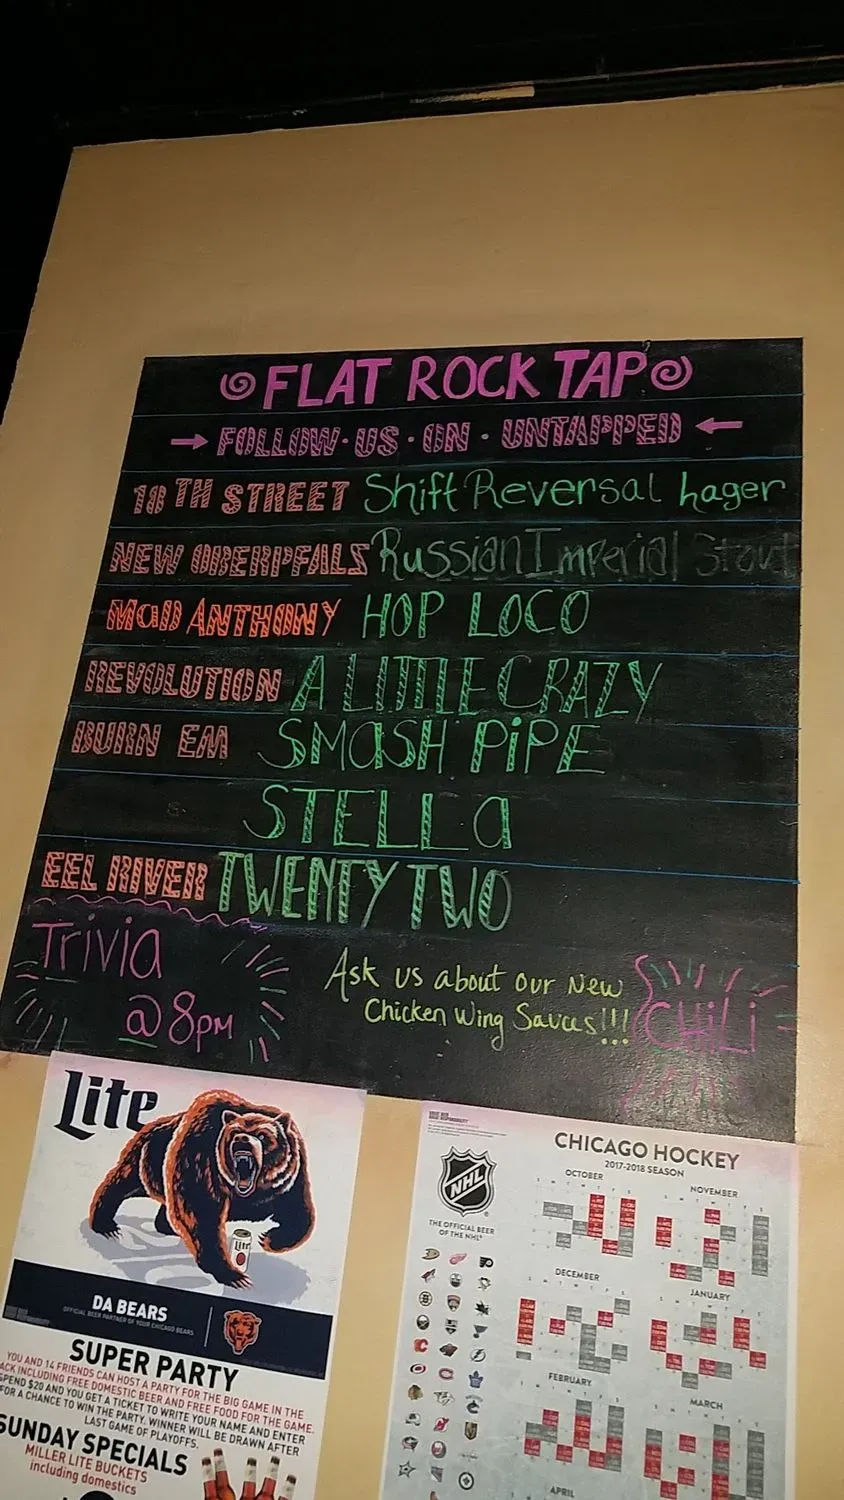 FLAT ROCK TAP
FOLLOW · US · ON · UNTAPPED
18 TH STREET Shift Reversal Lager
NEW OBERPFALS Russian Imperial Stout
MaD ANTHONY HOP LOCO
REVOLUTION A LITTLE CRAZY
BURN EM SMaSH PiPE
STELLa
EEL RIVER TWENTY TWO
Trivia
@ 8pm
Ask us about our New
Chicken Wing Sauces!!!
CHiLi
Lite
Lite
DA BEARS
OFFICIAL BEER PARTNER OF YOUR CHICAGO BEARS
SUPER PARTY
YOU AND 14 FRIENDS CAN HOST A PARTY FOR THE BIG GAME IN THE
ACK INCLUDING FREE DOMESTIC BEER AND FREE FOOD FOR THE GAME.
SPEND $20 AND YOU GET A TICKET TO WRITE YOUR NAME AND ENTER
FOR A CHANCE TO WIN THE PARTY. WINNER WILL BE DRAWN AFTER
LAST GAME OF PLAYOFFS.
SUNDAY SPECIALS
MILLER LITE BUCKETS
including domestics
NHL
THE OFFICIAL BEER
OF THE NHL
CHICAGO HOCKEY
2017-2018 SEASON
OCTOBER
NOVEMBER
DECEMBER
JANUARY
FEBRUARY
MARCH
APRIL